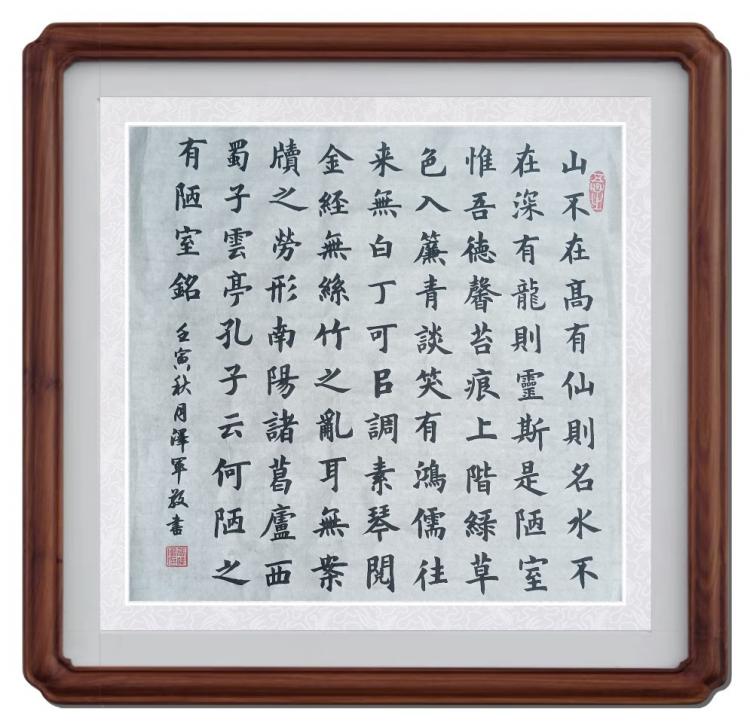 山不在髙有仙則名水不
在深有龍則靈斯是陋室
惟吾徳馨苔痕上階綠草
色入簾青談笑有鴻儒往
来無白丁可㠯調素琴閱
金經無絲竹之亂耳無案
牘之勞形南陽諸葛廬西
蜀子雲亭孔子云何陋之
有陋室銘
壬寅秋月澤軍敬書